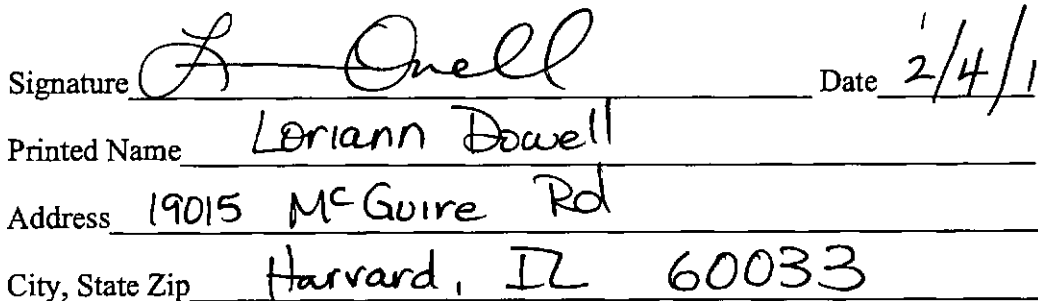 Signature Date 2/4/1
Printed Name Loriann Dowell
Address 19015 McGuire Rd
City, State Zip Harvard, IL 60033